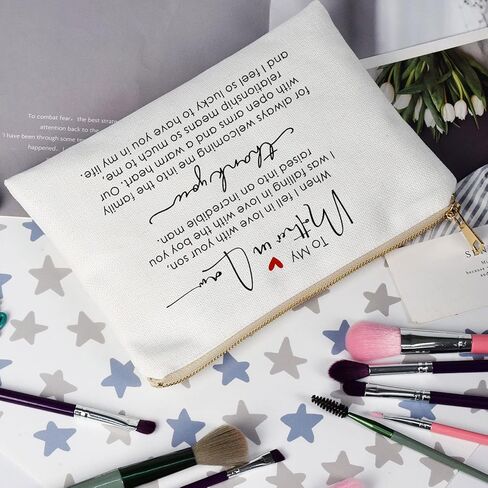 To My
Mother in Law
when I fell in love with your son,
I was falling in love with the boy you
raised into an incredible man.
thank you
for always welcoming me into the family
with open arms and a warm heart. Our
relationship means so much to me.
and I feel so lucky to have you in my life.
To combat fear, the best
attention back to